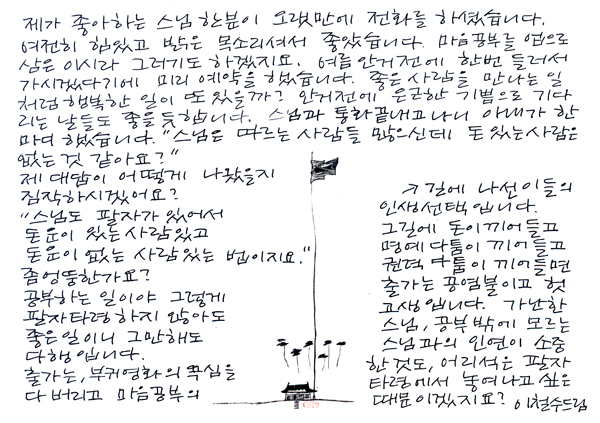 제가 좋아하는 스님 한분이 오랫만에 전화를 하셨습니다.
여전히 힘있고 밝은 목소리셔서 좋았습니다. 마음공부를 업으로
삼은 이시라 그러기도 하겠지요. 여름 안거전에 한번 들러서
가시겠다기에 미리 예약을 했습니다. 좋은 사람을 만나는 일
처럼 행복한 일이 또 있을까? 안거전에 은근한 기쁨으로 기다
리는 날들도 좋을 듯합니다. 스님과 통화끝내고나니 아내가 한
마디 했습니다. "스님은 따르는 사람들 많으신데 돈 있는 사람은
없는 것 같아요?"
제 대답이 어떻게 나왔을지
짐작하시겠어요?
"스님도 팔자가 있어서
돈운이 있는 사람있고
돈운이 없는 사람있는 법이지요."
좀 엉뚱한가요?
공부하는 일이야 그렇게
팔자타령 하지 않아도
좋은 일이니 그만해도
다행입니다.
출가는, 부귀영화의 욕심을
다 버리고 마음공부의
길에 나선 이들의
인생선택입니다.
그길에 돈이 끼어들고
명예다툼이 끼어들고
권력 다툼이 끼어들면
출가는 공염불이고 헛
고생입니다. 가난한
스님, 공부밖에 모르는
스님과의 인연이 소중
한 것도, 어리석은 팔자
타령에서 놓여나고 싶은
때문이겠지요? 이철수드림